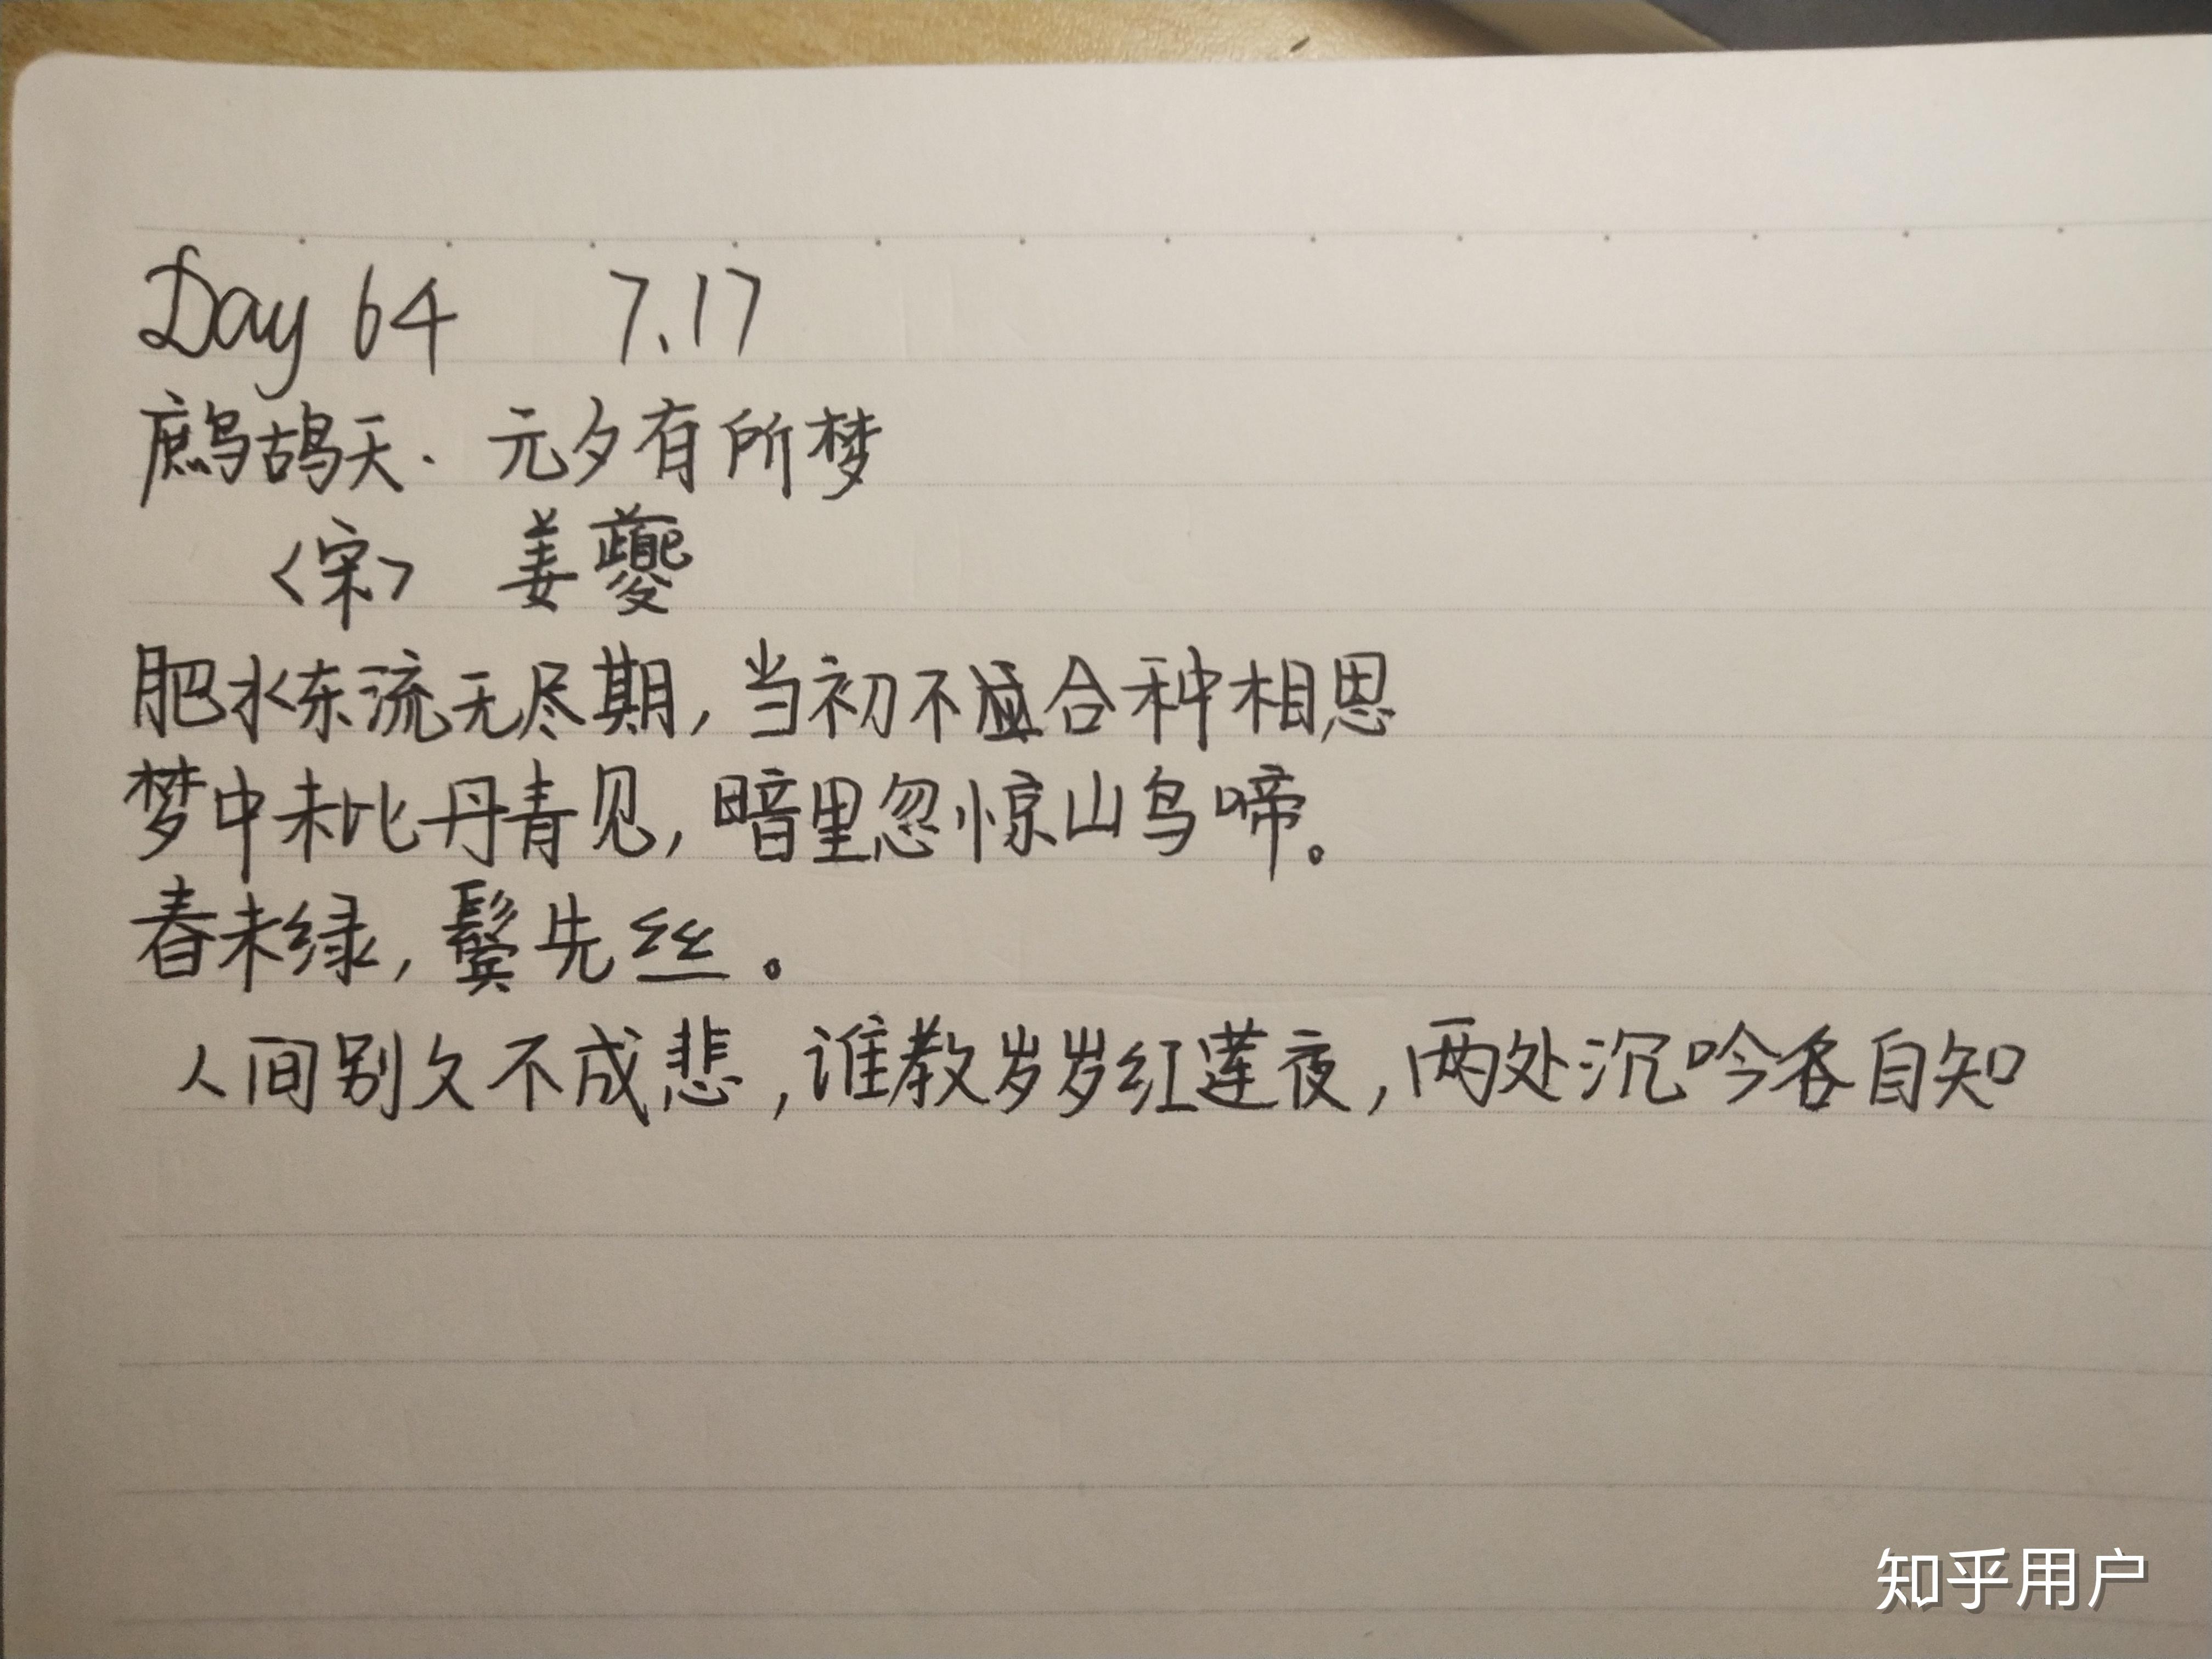 Day 64 7.17
鹧鸪天. 元夕有所梦
<宋> 姜夔
肥水东流无尽期, 当初不合种相思
梦中未比丹青见, 暗里忽惊山鸟啼。
春未绿, 鬓先丝。
人间别久不成悲, 谁教岁岁红莲夜, 两处沉吟各自知
知乎用户